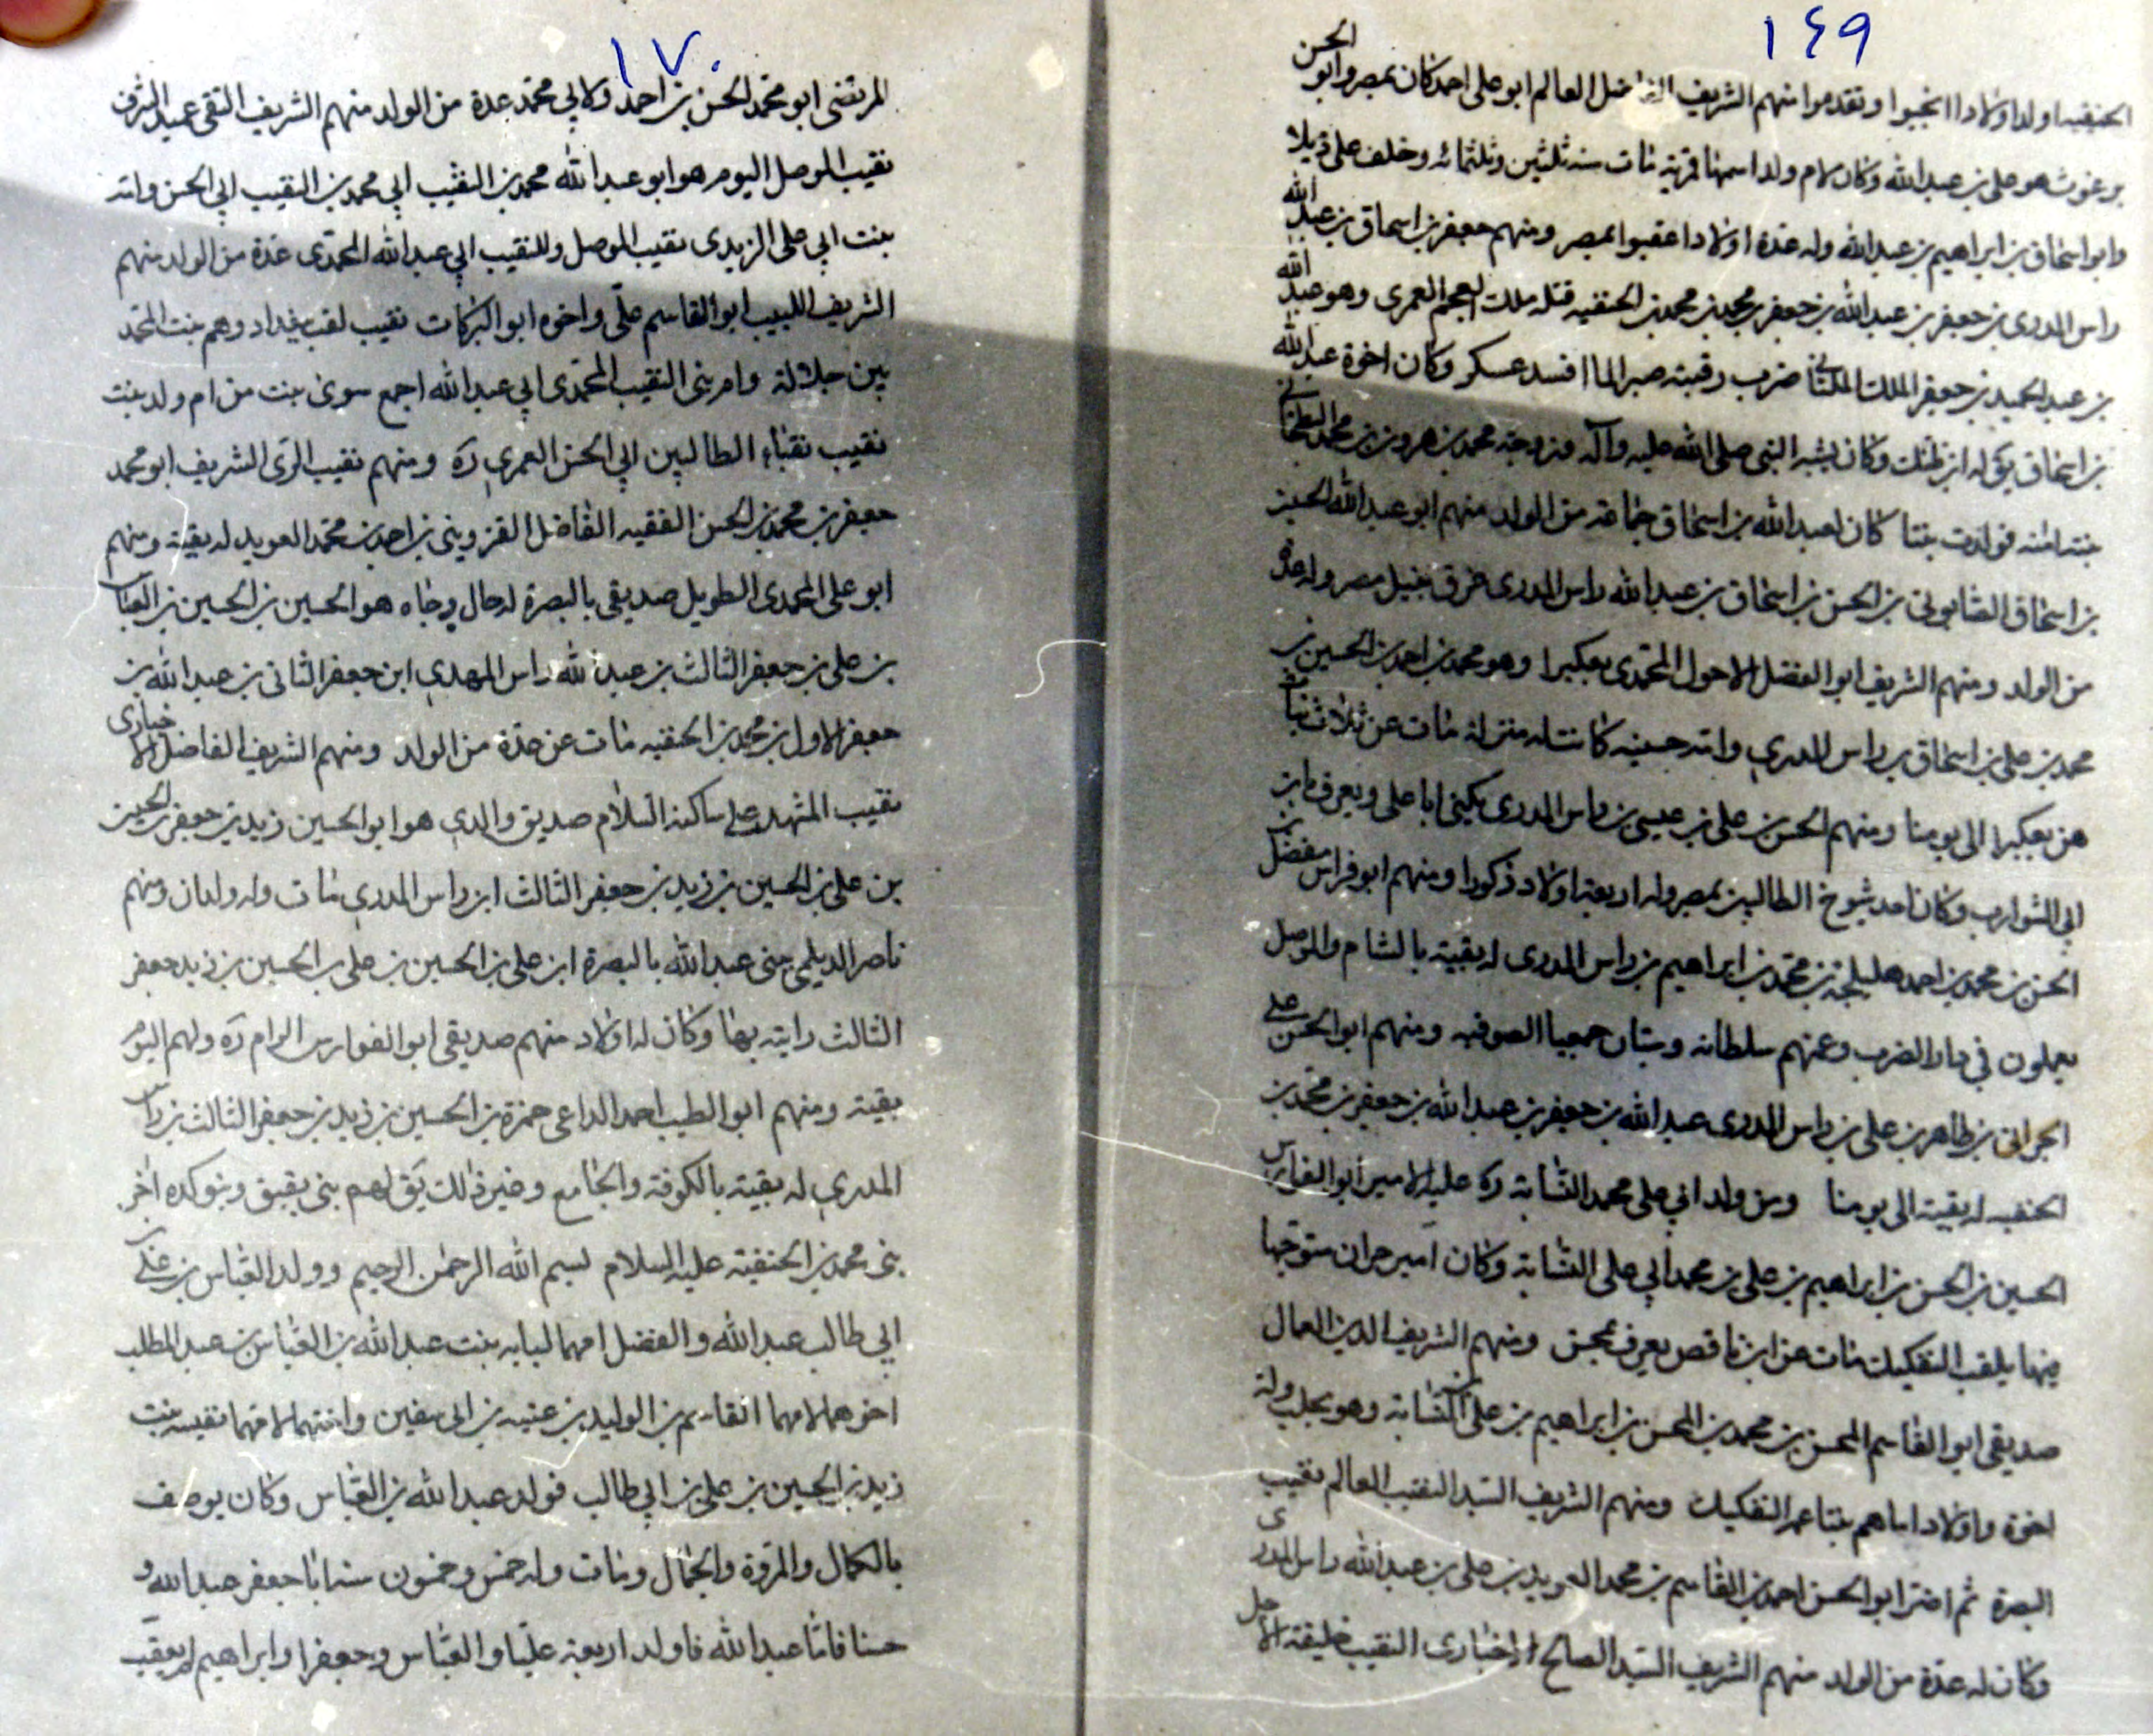 ١٤٩
الحنفيه اولد اولادا انجبوا وتقدموا منهم الشريف الفاضل العالم ابو على احمد كان بمصر وابو الحسن
برغوث هو على بن عبد الله وكان لام ولد اسمها مات سنه ثلثين وثلثمائه وخلف على ذيلا
وابو اسحاق بن ابراهيم بن عبد الله وله عدة اولاد اعقبوا بمصر ومنهم جعفر بن اسحاق بن عبد الله
راس المدرى بن جعفر بن عبد الله بن جعفر بن محمد بن محمد بن الحنفيه قتله ملك العمرى وهو عبد الله
بن عبد الحميد بن جعفر الملك الملتانى ضرب رقبته صبرا لما افسد عسكر وكان اخوة عبد الله
بن اسحاق يق له ابن ظنك وكان يشبه النبى صلى الله عليه وآله وزوجته محمد بن هرون بن محمد البطحانى
بنته امنه فولدت بنتا كان لعبد الله بن اسحاق جماعة من الولد منهم ابو عبد الله الحسين
بن اسحاق الصابونى بن الحسن بن اسحاق بن عبد الله راس المدرى غرق بنيل مصر وله عدة
من الولد ومنهم الشريف ابو الفضل الاحول المحمدى بعكبرا وهو محمد بن احمد بن الحسين بن
محمد بن على بن اسحاق بن راس المدرى وامه حسينيه كانت له منزلة مات عن ثلاث بنات
هن بعكبرا الى يومنا ومنهم الحسن بن على بن عيسى بن راس المدرى يكنى ابا على ويعرف بابن
ابى الشوارب وكان احد شيوخ الطالبين بمصر وله اربعة اولاد ذكورا ومنهم ابو فراس مفضل بن
الحسن بن محمد بن احمد هليلجة بن محمد بن ابراهيم بن راس المدرى له بقية بالشام والموصل
يعملون فى دار الضرب وعنهم سلطانه وستان الصوفيه ومنهم ابو الحسن على
الحرانى بن طاهر بن على بن راس المدرى عبد الله بن جعفر بن عبد الله بن جعفر بن محمد بن
الحنفيه له بقية الى يومنا ومن ولد ابى على محمد النسابة ره عليه الامير ابو الفارس
الحسين بن الحسن بن ابراهيم بن على بن محمد ابى على النسابة وكان امير حران متوجها
منها يلقب التفكيك مات عن ابن ناقص يعرف بمحسن ومنهم الشريف الدين العمال
صديقى ابو القاسم المحسن بن محمد بن الحسن بن ابراهيم بن على بن النسابة وهو بحلب وله
اخوة واولاد اماهم بنتا عم التفكيك ومنهم الشريف السيد النقيب العالم نقيب
البصرة ثم ابو الحسن احمد بن القاسم بن محمد العويد بن على بن عبد الله راس المدرى
وكان له عدة من الولد منهم الشريف السيد الصالح الاخبارى النقيب خليفة الاجل
١٧٠
المرتضى ابو محمد الحسن بن احمد وكان لابى محمد عدة من الولد منهم الشريف التقى عميد الشرف
نقيب الموصل اليوم هو ابو عبد الله محمد بن النقيب ابى محمد بن النقيب ابى الحسن وامه
بنت ابى على الزيدى نقيب الموصل وللنقيب ابى عبد الله المحمدى عدة من الولد منهم
الشريف اللبيب ابو القاسم على واخوه ابو البركات نقيب لقب ببغداد وهم بنت المحمد
بين جلالة وام بنى النقيب المحمدى ابى عبد الله اجمع سوى بنت من ام ولد بنت
نقيب نقباء الطالبين ابى الحسن العمرى ره ومنهم نقيب الرى الشريف ابو محمد
جعفر بن محمد بن الحسن الفقيه الفاضل القزوينى بن احمد بن محمد العويد له بقية ومنهم
ابو على المحمدى الطويل صديقى بالبصرة له حال وجاه هو الحسين بن الحسين بن العباس
بن على بن جعفر الثالث بن عبد الله راس المهدى ابن جعفر الثانى بن عبد الله بن
جعفر الاول بن محمد بن الحنفيه مات عن عدة من الولد ومنهم الشريف الفاضل الاخبارى
نقيب المشهد على ساكنه السلام صديق والدى هو ابو الحسين زيد بن جعفر بن الحسين
بن على بن الحسين بن زيد بن جعفر الثالث ابن راس المدرى مات وله ولدان ومنهم
ناصر الديلمى حتى عبد الله بالبصرة ابن على بن الحسين بن على بن الحسين بن زيد جعفر
الثالث رايته بها وكان له اولاد منهم صديقى ابو الفوارس الرام ره ولهم اليوم
بقية ومنهم ابو الطيب احمد الداعى حمزة بن الحسين بن زيد بن جعفر الثالث بن راس
المدرى له بقية بالكوفة والجامع وغير ذلك يق لهم بنى بقبق وبنو كده اخر
بنى محمد بن الحنفية عليه السلام بسم الله الرحمن الرحيم وولد العباس بن على
ابى طالب عبد الله والفضل امهما لبابه بنت عبد الله بن العباس بن عبد المطلب
اخوهما لامهما القاسم بن الوليد بن عتبه بن ابى سفين واختهما لامهما نفيسه بنت
زيد بن الحسين بن على بن ابى طالب فولد عبد الله بن العباس وكان يوصف
بالكمال والمروة والجمال ومات وله خمس وخمسون سنه ابا جعفر عبد الله و
حسنا فاما عبد الله فاولد اربعة عليا والعباس وجعفرا وابراهيم لم يعقب